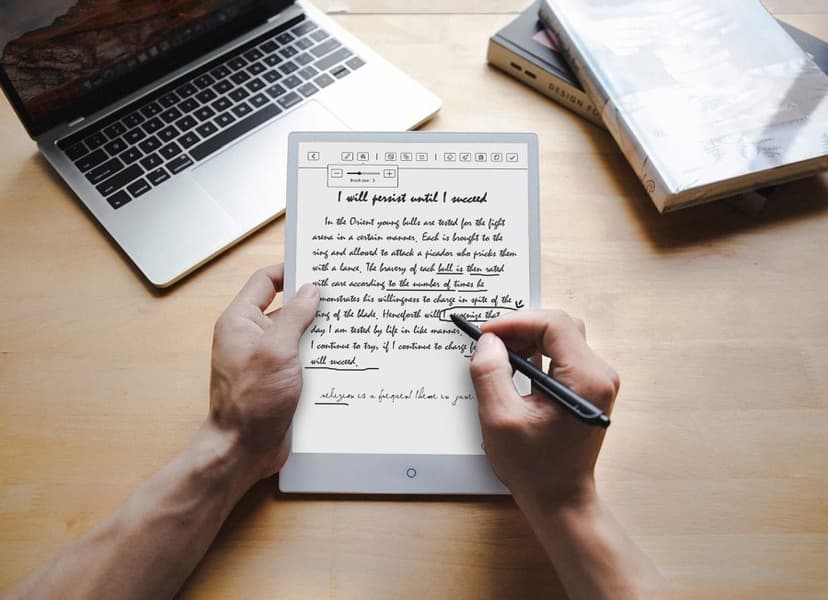 Brush size: 3
I will persist until I succeed
In the Orient young bulls are tested for the fight
arena in a certain manner. Each is brought to the
ring and allowed to attack a picador who pricks them
with a lance. The bravery of each bull is then rated
with care according to the number of times he
monstrates his willingness to charge in spite of the
ting of the blade. Henceforth will I recognize that
day I am tested by life in like manner.
I continue to try, if I continue to charge f
will succeed.
religion is a frequent theme in
DESIGN FO